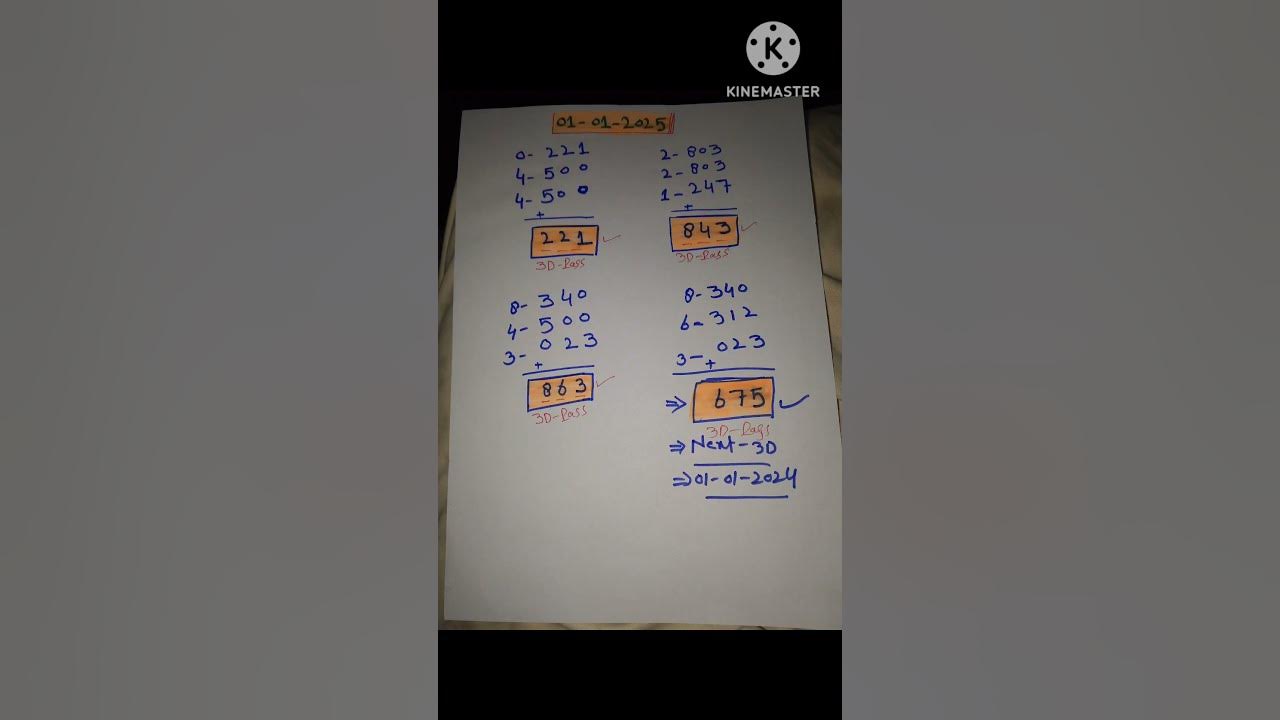 KINEMASTER
01-01-2025
0- 221
4- 500
4- 500
+
221
3D-Pass
2- 803
2- 803
1- 247
+
843
3D-Pass
8- 340
4- 500
3- 023
+
863
3D-Pass
8- 340
6- 312
3- 023
+
⇒ 675
3D-Pass
⇒ Next-3D
⇒ 01-01-2024